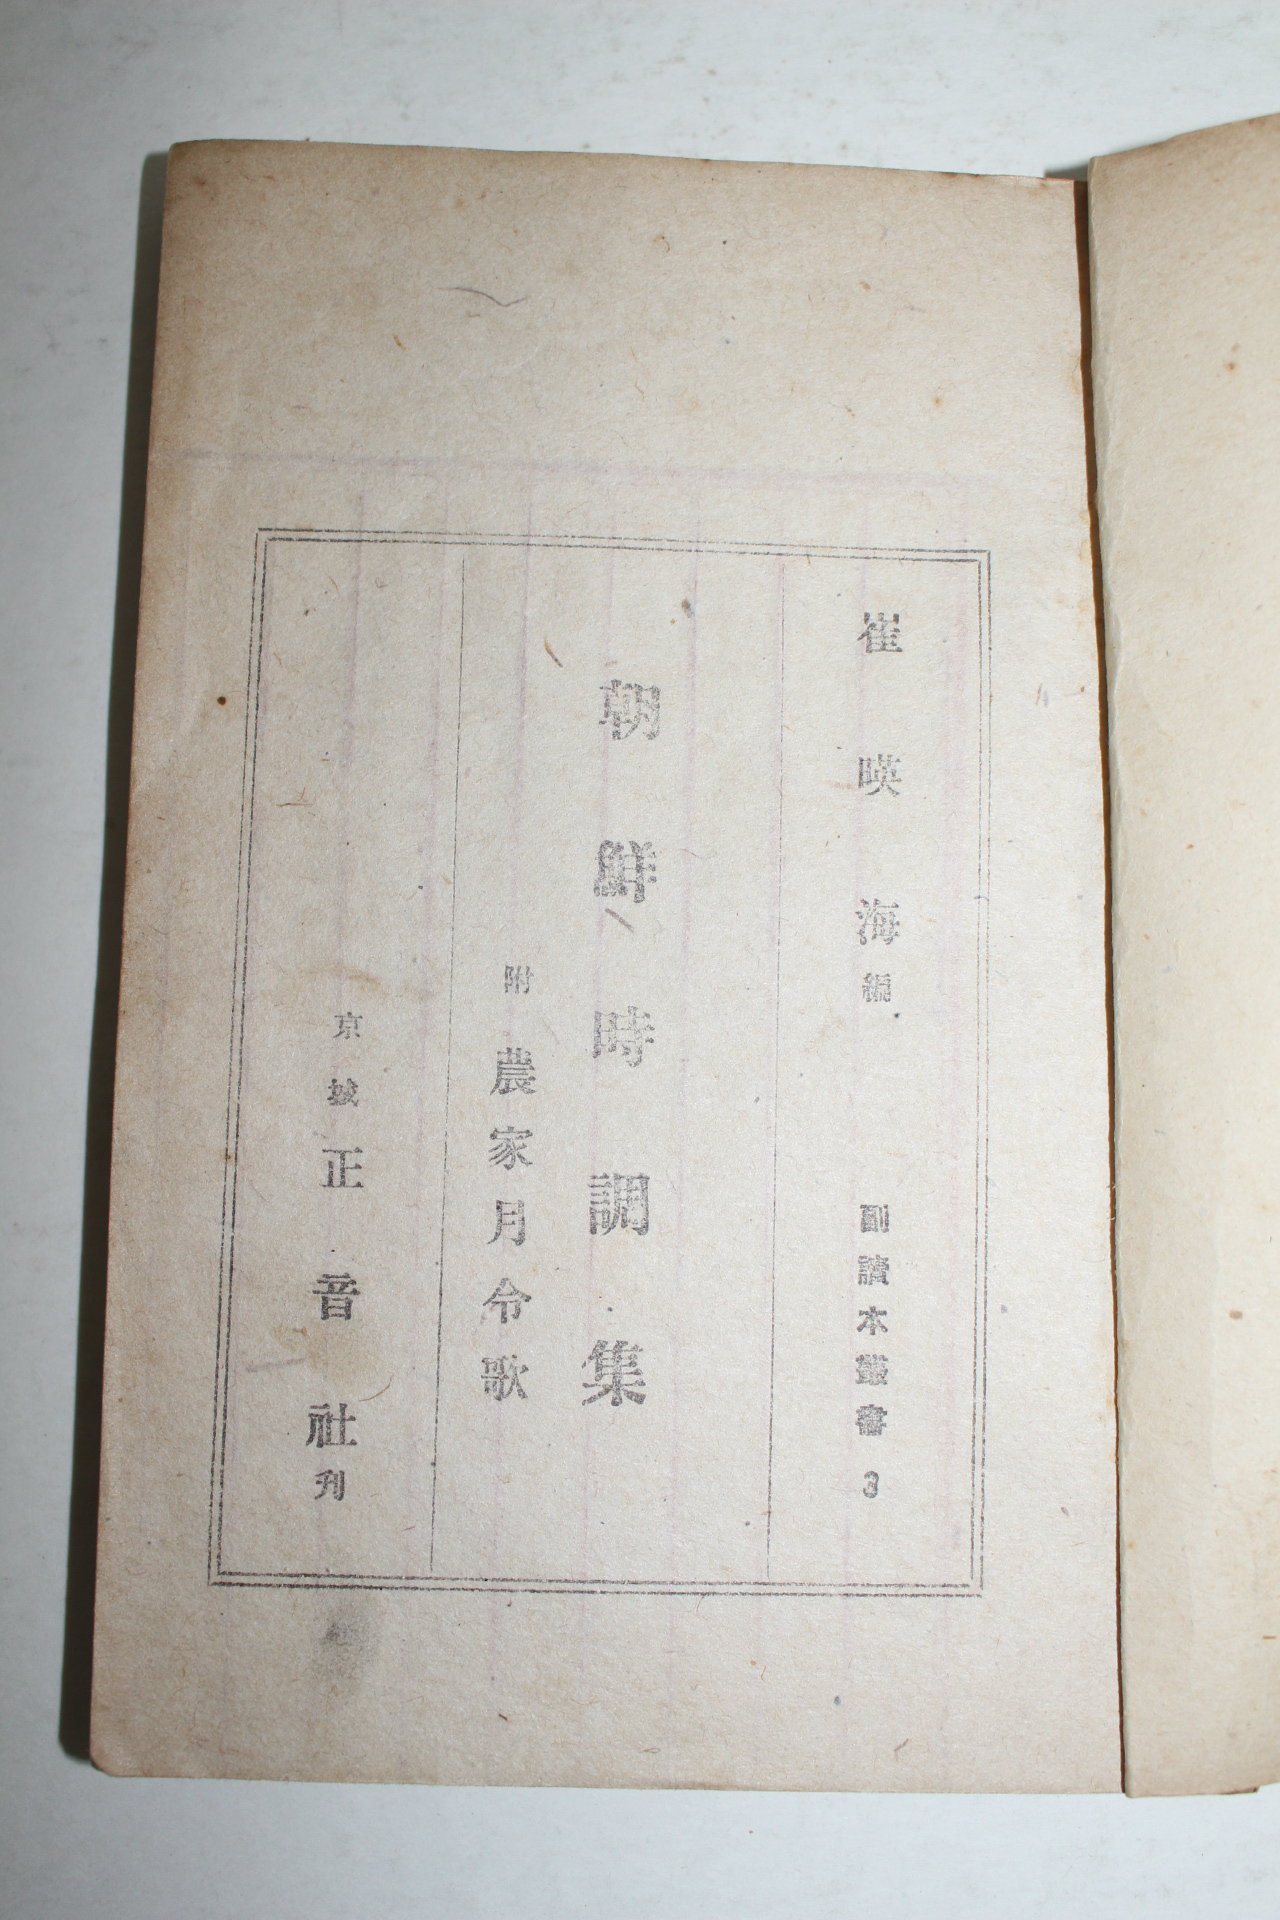 崔暎海編 副讀本叢書 3
朝鮮時調集
附 農家月令歌
京城 正音社刊